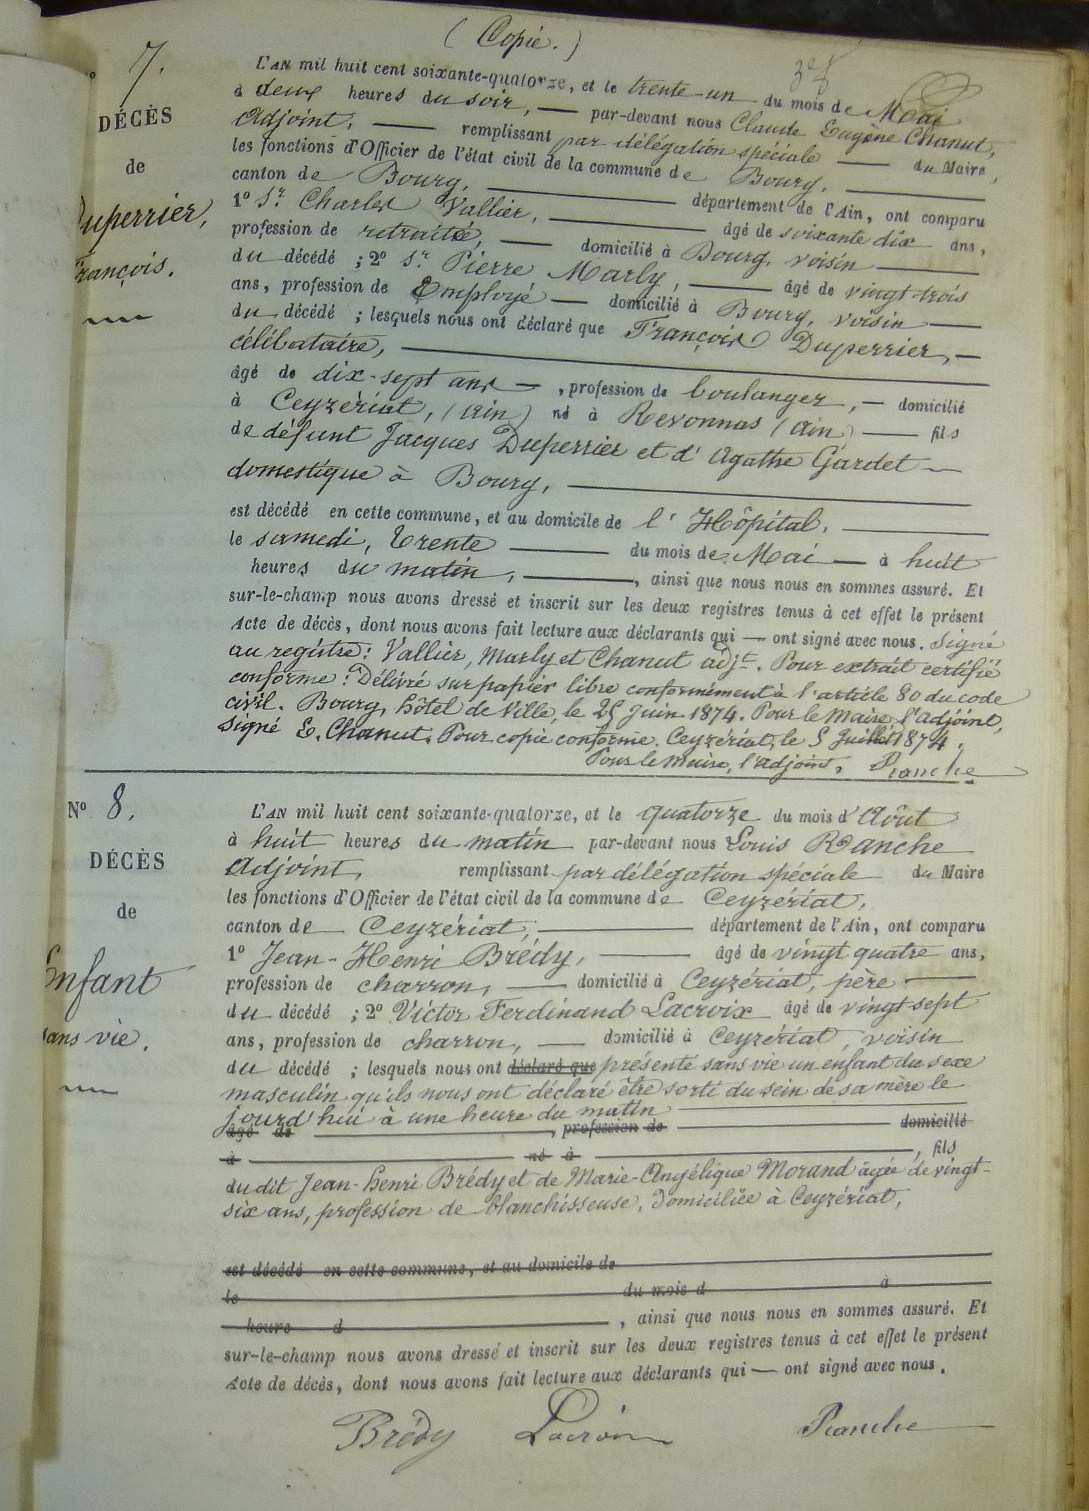 ( Copie. )
7.
L'AN mil huit cent soixante-quatorze, et le trente-un du mois de Mai
à deux heures du soir, par-devant nous Claude Eugène Chanut,
Adjoint, remplissant par délégation spéciale du Maire,
les fonctions d'Officier de l'état civil de la commune de Bourg,
canton de Bourg, département de l'Ain, ont comparu
1° Sr. Charles Vallier, âgé de soixante dix ans,
profession de retraité, domicilié à Bourg, voisin
du décédé ; 2° Sr. Pierre Marly, âgé de vingt-trois
ans, profession de Employé domicilié à Bourg, voisin
du décédé ; lesquels nous ont déclaré que François Duperrier,
célibataire,
âgé de dix-sept ans, profession de boulanger, domicilié
à Ceyzériat, (Ain) né à Revonnas (Ain) fils
de défunt Jacques Duperrier et d'Agathe Gardet
domestique à Bourg,
est décédé en cette commune, et au domicile de l'Hôpital,
le samedi, trente du mois de Mai à huit
heures du matin, ainsi que nous nous en sommes assuré. Et
sur-le-champ nous avons dressé et inscrit sur les deux registres tenus à cet effet le présent
Acte de décès, dont nous avons fait lecture aux déclarants qui — ont signé avec nous. Signé
au registre : Vallier, Marly et Chanut adjt. Pour extrait certifié
conforme : Délivré sur papier libre conformément à l'article 80 du code
civil. Bourg, hôtel de Ville, le 25 Juin 1874. Pour le Maire, l'adjoint,
Signé E. Chanut. Pour copie conforme. Ceyzériat, le 5 Juillet 1874.
Pour le Maire, l'adjoint, Ranche
DÉCÈS
de
Duperrier,
François.
N° 8.
DÉCÈS
de
Enfant
sans vie.
L'AN mil huit cent soixante-quatorze, et le quatorze du mois d'Août
à huit heures du matin par-devant nous Louis Ranche
Adjoint, remplissant par délégation spéciale du Maire
les fonctions d'Officier de l'état civil de la commune de Ceyzériat,
canton de Ceyzériat, département de l'Ain, ont comparu
1° Jean-Henri Brédy, âgé de vingt quatre ans,
profession de charron, domicilié à Ceyzériat, père
du décédé ; 2° Victor Ferdinand Lacroix âgé de vingt-sept
ans, profession de charron, domicilié à Ceyzériat, voisin
du décédé ; lesquels nous ont déclaré que présenté sans vie un enfant du sexe
masculin qu'ils nous ont déclaré être sorti du sein de sa mère le
jourd'hui à une heure du matin
âgé de , profession de domicilié
à né à , fils
du dit Jean-henri Brédy et de Marie-Angélique Morand âgée de vingt-
six ans, profession de blanchisseuse, domiciliée à Ceyzériat,
est décédé en cette commune, et au domicile de
le du mois d à
heure d , ainsi que nous nous en sommes assuré. Et
sur-le-champ nous avons dressé et inscrit sur les deux registres tenus à cet effet le présent
Acte de décès, dont nous avons fait lecture aux déclarants qui — ont signé avec nous.
Brédy Lacroix Ranche